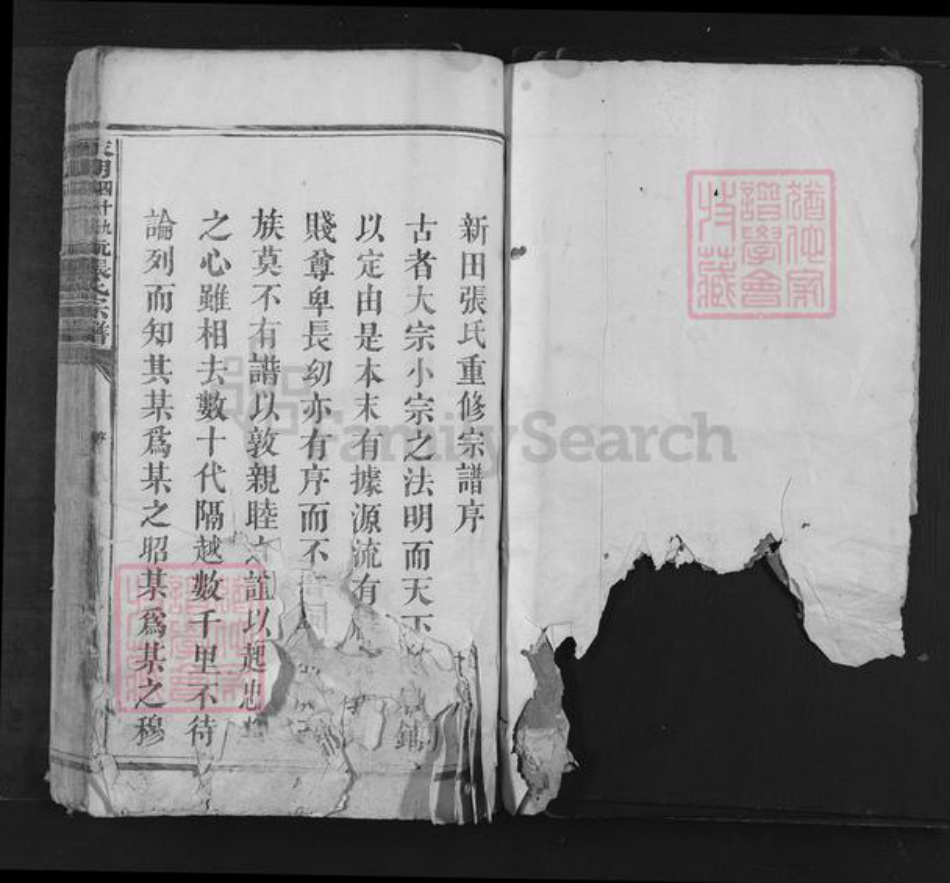 新田張氏重修宗譜序
古者大宗小宗之法明而天下
以定由是本末有據源流有
賤尊卑長幼亦有序而不
族莫不有譜以敦親睦之誼以起忠
之心雖相去數十代隔越數千里不待
論列而知其某爲某之昭某爲某之穆
張氏宗譜
猶他家
譜學會
特藏
FamilySearch